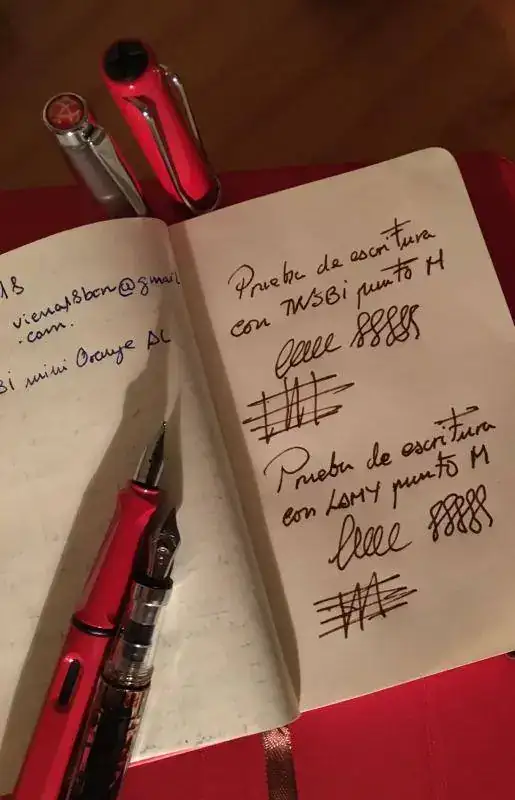 18
viena18bcn@gmail
.com.
Bi mini Orange AL
Prueba de escritura
con TWSBi punto M
eeee
Prueba de escritura
con LAMY punto M
eeee